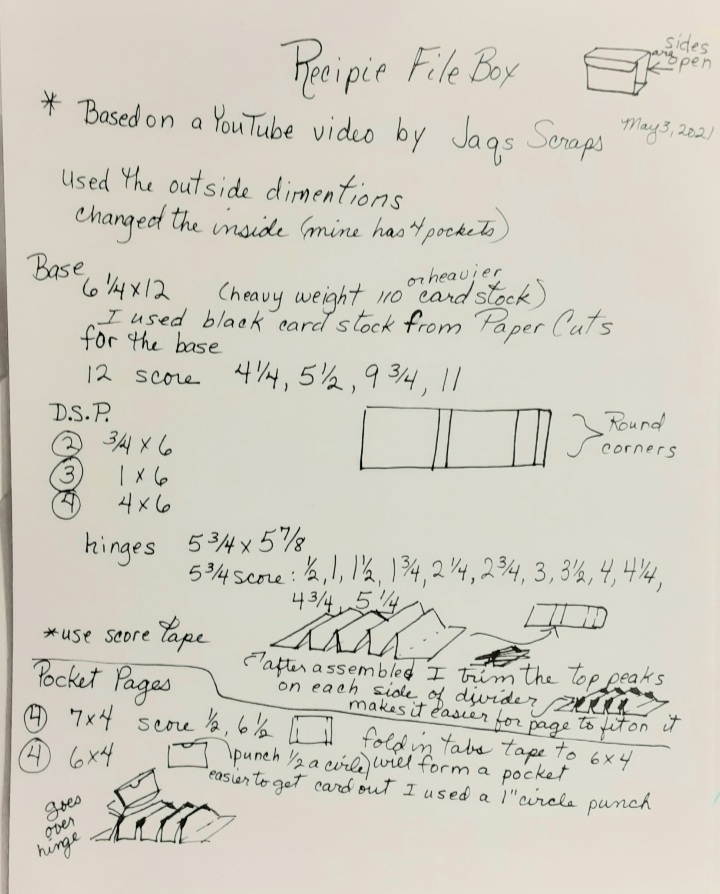 Recipie File Box
sides
are
open
* Based on a YouTube video by Jaqs Scraps
May 3, 2021
used the outside dimentions
changed the inside (mine has 4 pockets)
Base
6 1/4 x 12 (heavy weight 110 or heavier card stock)
I used black card stock from Paper Cuts
for the base
12 score 4 1/4, 5 1/2, 9 3/4, 11
D.S.P.
② 3/4 x 6
③ 1 x 6
④ 4 x 6
Round
corners
hinges 5 3/4 x 5 7/8
5 3/4 score: 1/2, 1, 1 1/2, 1 3/4, 2 1/4, 2 3/4, 3, 3 1/2, 4, 4 1/4,
4 3/4, 5 1/4
*use score tape
after assembled I trim the top peaks
on each side of divider
makes it easier for page to fit on it
Pocket Pages
④ 7x4 score 1/2, 6 1/2 fold in tabs tape to 6x4
will form a pocket
④ 6x4 punch 1/2 a circle)
easier to get card out I used a 1" circle punch
goes
over
hinge